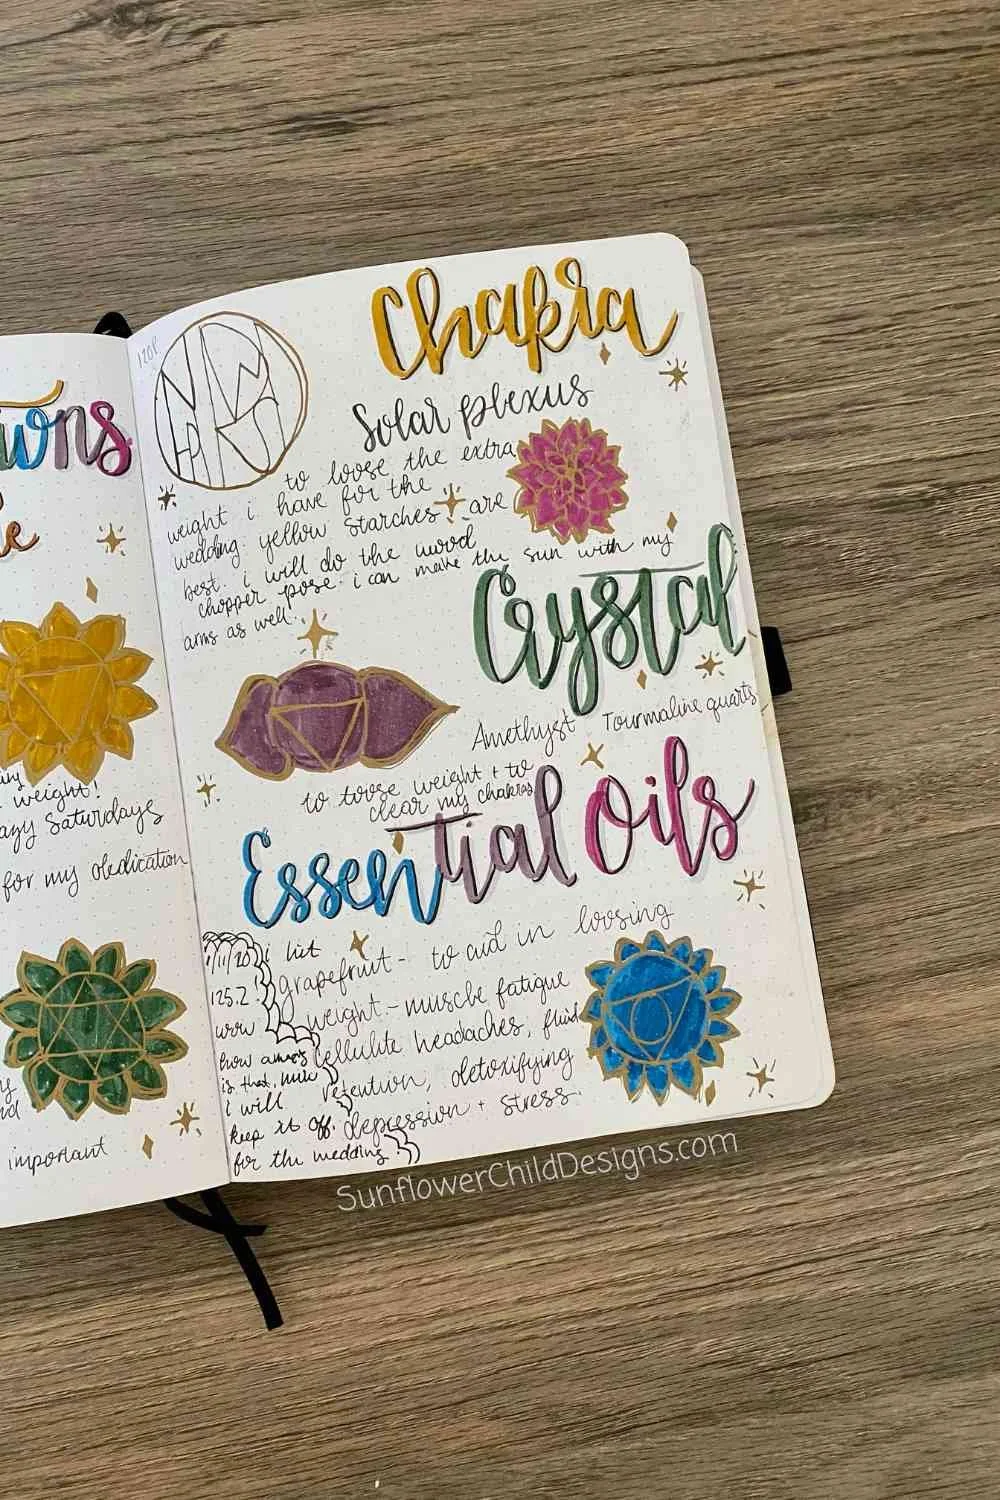 wns
e
weight!
azy Saturdays
for my oledication
important
Chakra
Solar plexus
to loose the extra
weight i have for the
wedding. yellow starches are
best. i will do the wood
chopper pose. i can make the sun with my
arms as well.
Crystal
Amethyst Tourmaline quarts
to loose weight + to
clear my chakras
Essential Oils
1/11/20 i hit
125.2!
wow
how amazing
is that, now
i will
keep it off
for the wedding.
grapefruit- to aid in loosing
weight - muscle fatigue
cellulite headaches, fluid
retention, detoxifying
depression + stress.
SunflowerChildDesigns.com